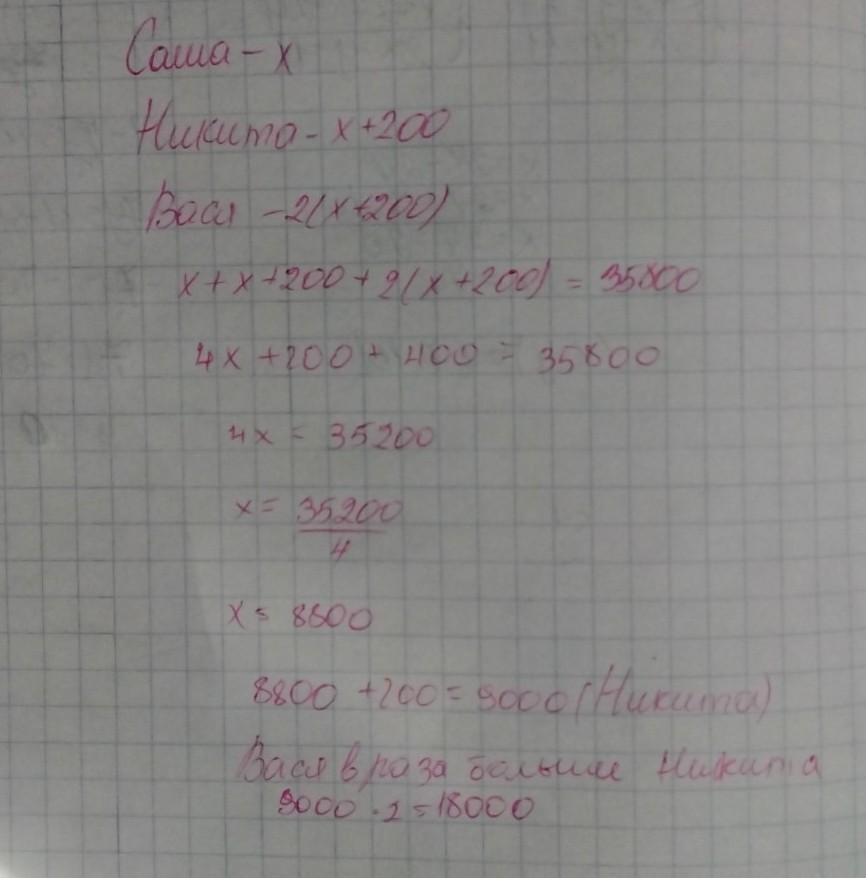 Саша - x
Никита - x+200
Вася - 2(x+200)
x+x+200+2(x+200) = 35800
4x+200+400 = 35800
4x = 35200
x = 35200/4
x = 8800
8800+200=9000 (Никита)
Вася в раза больше Никита
9000·2=18000